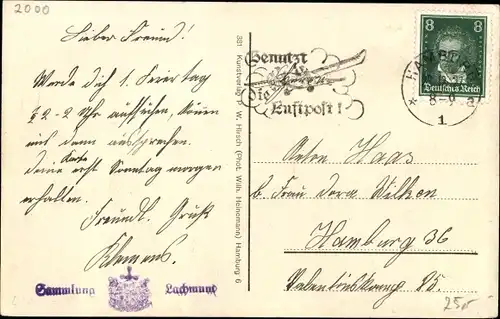 2000
Lieber Freund!
Werde dich 1. Feiertag
2-2 Uhr aufsuchen, können
uns dann aussprechen.
Karte
Deine erst Sonntag morgen
erhalten.
Freundl. Gruß
Klemens.
Sammlung Lachmund
381 Kunstverlag P. W. Hirsch (Phot. Wilh. Heinemann) Hamburg 6
Benutzt
die
Luftpost!
8 8
Deutsches Reich
HAMBURG
1
Anton Haas
b. Frau Dora Wilken
Hamburg 36
Valentinskamp 75.
25,-